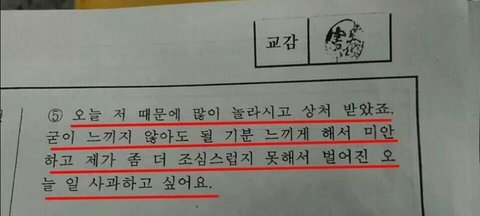 교감
⑤ 오늘 저 때문에 많이 놀라시고 상처 받았죠.
굳이 느끼지 않아도 될 기분 느끼게 해서 미안
하고 제가 좀 더 조심스럽지 못해서 벌어진 오
늘 일 사과하고 싶어요.